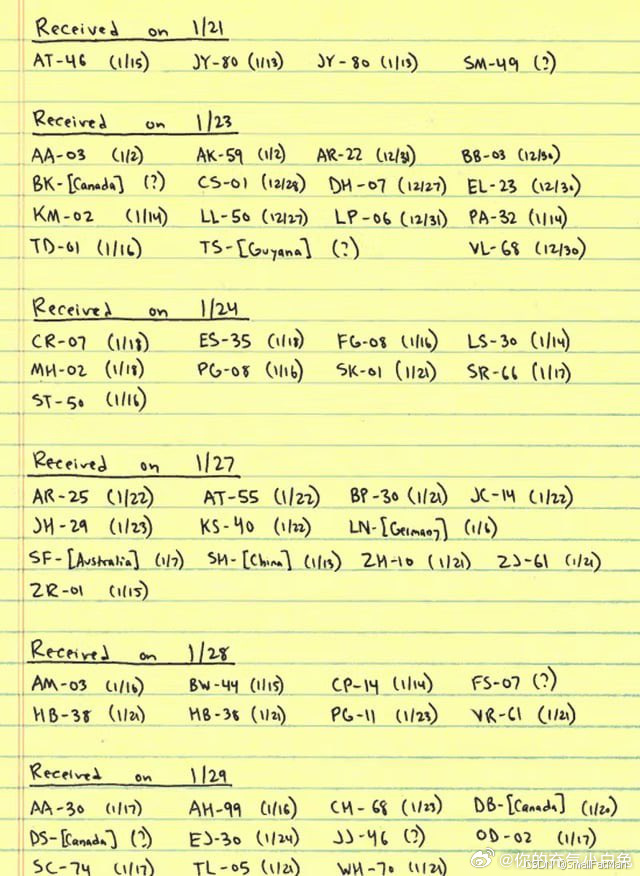 Received on 1/21
AT-46 (1/15) JY-80 (1/13) JY-80 (1/13) SM-49 (?)
Received on 1/23
AA-03 (1/2) AK-59 (1/2) AR-22 (12/31) BB-03 (12/30)
BK-[Canada] (?) CS-01 (12/28) DH-07 (12/27) EL-23 (12/30)
KM-02 (1/14) LL-50 (12/27) LP-06 (12/31) PA-32 (1/14)
TD-01 (1/16) TS-[Guyana] (?) VL-68 (12/30)
Received on 1/24
CR-07 (1/18) ES-35 (1/18) FG-08 (1/16) LS-30 (1/14)
MH-02 (1/18) PG-08 (1/16) SK-01 (1/21) SR-66 (1/17)
ST-50 (1/16)
Received on 1/27
AR-25 (1/22) AT-55 (1/22) BP-30 (1/21) JC-14 (1/22)
JH-29 (1/23) KS-40 (1/22) LN-[Germany] (1/6)
SF-[Australia] (1/7) SH-[China] (1/13) ZH-10 (1/21) ZJ-61 (1/21)
ZR-01 (1/15)
Received on 1/28
AM-03 (1/16) BW-44 (1/15) CP-14 (1/14) FS-07 (?)
HB-38 (1/21) HB-38 (1/21) PG-11 (1/23) VR-61 (1/21)
Received on 1/29
AA-30 (1/17) AH-99 (1/16) CH-68 (1/23) DB-[Canada] (1/20)
DS-[Canada] (?) EJ-30 (1/24) JJ-46 (?) OD-02 (1/17)
SC-74 (1/17) TL-05 (1/21) WH-70 (1/21)
CSDN @SmallFatMan